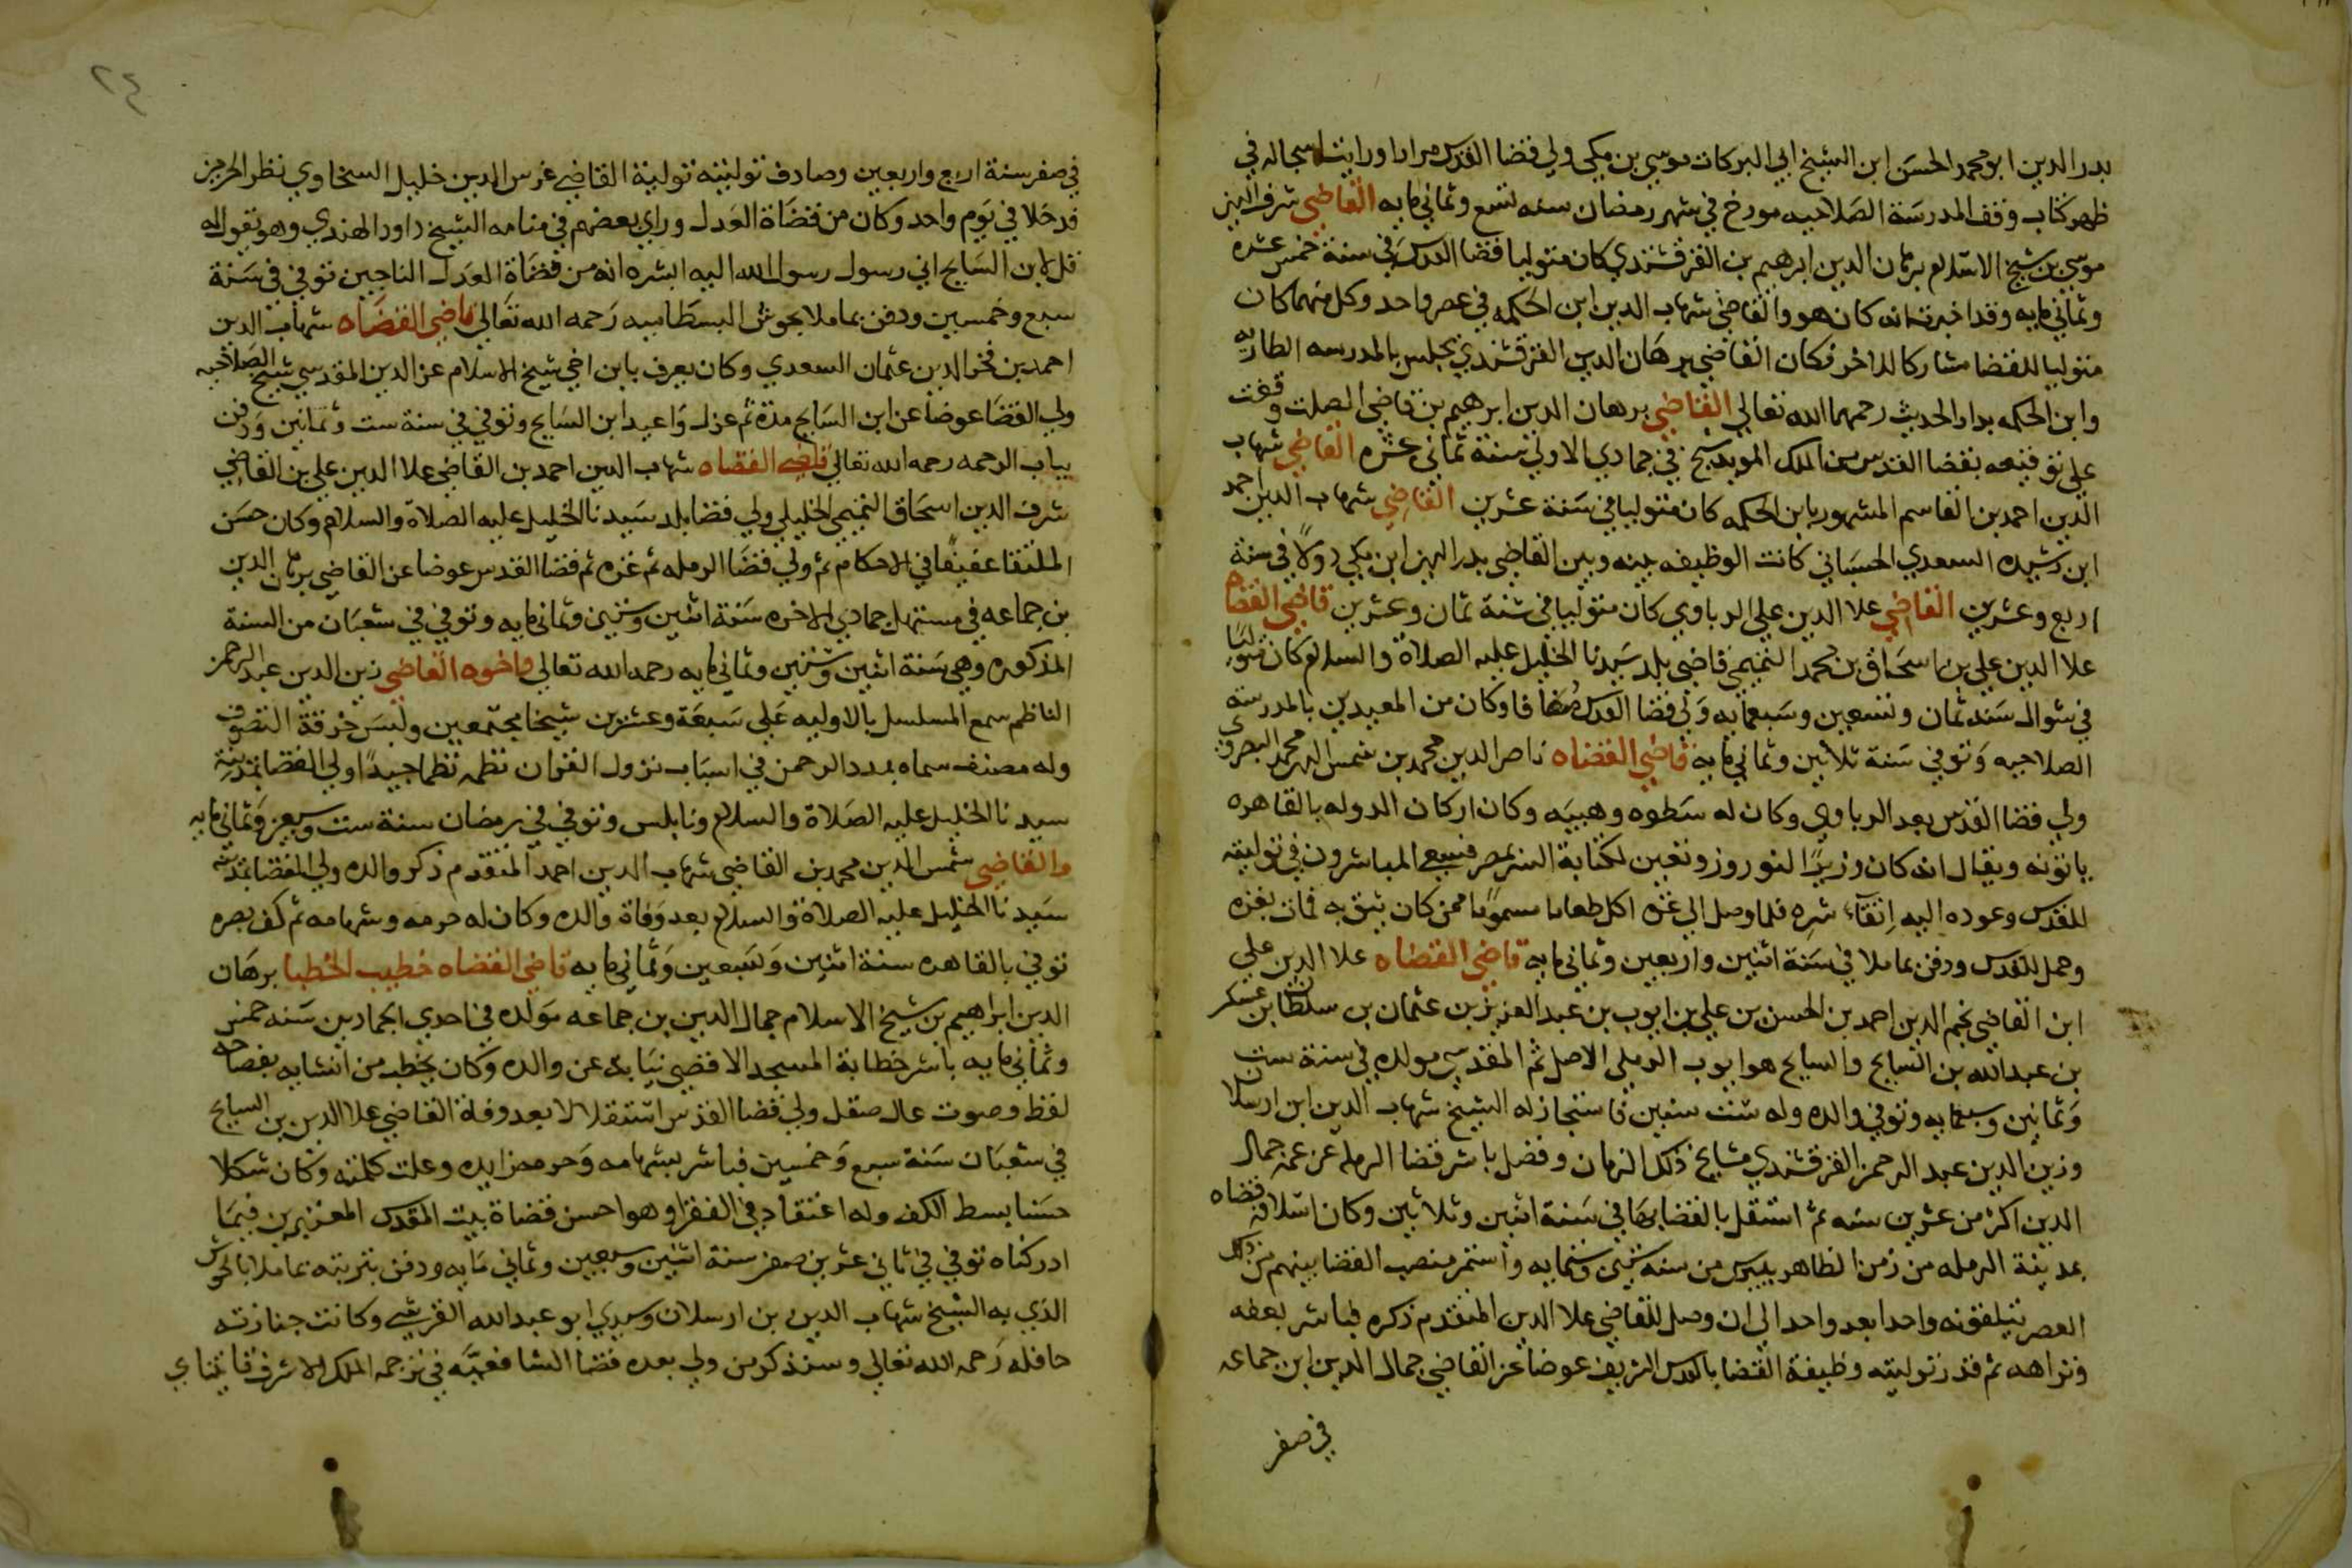 بدر الدين ابو محمد الحسن ابن الشيخ ابي البركات موسي بن مكي ولي قضا القدس مرارا ورايت اسجاله في
ظهر كتاب وقف المدرسة الصلاحيه مورخ في شهر رمضان سنه تسع وثماني مايه القاضي شرف الدين
موسي بن شيخ الاسلام برهان الدين ابرهيم بن القرقشندي كان متوليا قضا القدس في سنة خمس عشره
وثماني مايه وقد اخبرت انه كان هو والقاضي شهاب الدين ابن الحكمه في عصر واحد وكل منهما كان
متوليا للقضا مشاركا للاخر فكان القاضي برهان الدين القرقشندي يجلس بالمدرسه الطازيه
وابن الحكمه بدار الحديث رحمهما الله تعالي القاضي برهان الدين ابرهيم بن قاضي الصلت وقفت
علي توقيعه بقضا القدس من الملك المويد شيخ في جمادي الاولي سنة ثماني عشره القاضي شهاب
الدين احمد بن القاسم المشهور بابن الحكمه كان متوليا في سنة عشرين القاضي شهاب الدين احمد
ابن رشيده السعدي الحسباني كانت الوظيفه بينه وبين القاضي بدر الدين ابن مكي دولا في سنة
اربع وعشرين القاضي علا الدين علي الرباوي كان متوليا في سنة ثمان وعشرين قاضي القضاه
علا الدين علي بن اسحاق بن محمد التميمي قاضي بلد سيدنا الخليل عليه الصلاة والسلام كان متوليا
في شوال سنه ثمان وتسعين وسبعمايه ولي قضا القدس مضافا وكان من المعيدين بالمدرسه
الصلاحيه وتوفي سنة ثلاثين وثماني مايه قاضي القضاه ناصر الدين محمد بن شمس الدين محمد البصروي
ولي قضا القدس بعد الرباوي وكان له سطوه وهيبه وكان اركان الدوله بالقاهره
ياتونه ويقال انه كان وزيرا لنوروز وتعين لكتابة السر بمصر فسعي المباشرون في توليته
للقدس وعوده اليه اتقآء شره فلما وصل الي غزه اكل طعاما مسموما ممن كان يثق به فمات بغزه
وحمل للقدس ودفن بماملا في سنة اثنين واربعين وثماني مايه قاضي القضاه علا الدين علي
ابن القاضي نجم الدين احمد بن الحسن بن علي بن ايوب بن عبد العزيز بن عثمان بن سلطان بن عسكر
بن عبد الله بن السايح والسايح هو ايوب الرملي الاصل ثم المقدسي مولده في سنة ست
وثمانين وسبعمايه وتوفي والده وله ست سنين فاستجاز له الشيخ شهاب الدين ابن ارسلان
وزين الدين عبد الرحمن القرقشندي مشايخ ذلك الزمان وفضل باشر قضا الرمله عن عمه جمال
الدين اكثر من عشرين سنه ثم استقل بالقضا بها في سنة اثنين وثلاثين وكان اسلافه قضاه
بمدينة الرمله من زمن الظاهر بيبرس من سنه ستين وستمايه واستمر منصب القضا بينهم من ذلك
العصر يتلقونه واحدا بعد واحد الي ان وصل للقاضي علا الدين المتقدم ذكره فباشر بعفه
ونزاهه ثم قدر توليته وظيفة القضا بالقدس الشريف عوضا عن القاضي جمال الدين ابن جماعه
في صفر
٢٤
في صفر سنة اربع واربعين وصادف توليته تولية القاضي غرس الدين خليل السخاوي نظر الحرمين
فدخلا في يوم واحد وكان من قضاة العدل وراي بعضهم في منامه الشيخ داود الهندي وهو يقول له
قل لابن السايح اني رسول رسول الله اليه ابشره انه من قضاة العدل الناجين توفي في سنة
سبع وخمسين ودفن بماملا بحوش البسطاميه رحمه الله تعالي قاضي القضاه شهاب الدين
احمد بن فخر الدين عثمان السعدي وكان يعرف بابن اخي شيخ الاسلام عز الدين المقدسي شيخ الصلاحيه
ولي القضا عوضا عن ابن السايح مدة ثم عزل واعيد ابن السايح وتوفي في سنة ست وثمانين ودفن
بباب الرحمه رحمه الله تعالي قاضي القضاه شهاب الدين احمد بن القاضي علا الدين علي بن القاضي
شرف الدين اسحاق التميمي الخليلي ولي قضا بلد سيدنا الخليل عليه الصلاة والسلام وكان حسن
الملتقا عفيفا في الاحكام ثم ولي قضا الرمله ثم غزه ثم قضا القدس عوضا عن القاضي برهان الدين
بن جماعه في مستهل جمادي الاخره سنة اثنين وستين وثماني مايه وتوفي في شعبان من السنة
المذكوره وهي سنة اثنين وستين وثماني مايه رحمه الله تعالي واخوه القاضي زين الدين عبد الرحمن
الناظم سمع المسلسل بالاوليه علي سبعة وعشرين شيخا مجتمعين ولبس خرقة التصوف
وله مصنف سماه بمدد الرحمن في اسباب نزول القران نظمه نظما جيدا ولي القضا بمدينة
سيدنا الخليل عليه الصلاة والسلام ونابلس وتوفي في رمضان سنة ست وسبعين وثماني مايه
والقاضي شمس الدين محمد بن القاضي شهاب الدين احمد المتقدم ذكر والده ولي القضا بمدينه
سيدنا الخليل عليه الصلاة والسلام بعد وفاة والده وكان له حرمه وشهامه ثم كف بصره
توفي بالقاهره سنة اثنين وتسعين وثماني مايه قاضي القضاه خطيب الخطبا برهان
الدين ابراهيم بن شيخ الاسلام جمال الدين بن جماعه مولده في احدي الجمادين سنه خمس
وثماني مايه باشر خطابة المسجد الاقصي نيابة عن والده وكان يخطب من انشايه بفصاحه
لفظ وصوت عال صقل ولي قضا القدس استقلالا بعد وفاة القاضي علا الدين بن السايح
في شعبان سنة سبع وخمسين فباشر بشهامه وحرمه زايده وعلت كلمته وكان شكلا
حسنا بسط الكف وله اعتقاد في الفقرا وهو احسن قضاة بيت المقدس المعتبرين فيما
ادركناه توفي في ثاني عشرين صفر سنة اثنين وسبعين وثماني مايه ودفن بتربته بماملا بالحوش
الذي به الشيخ شهاب الدين بن ارسلان وسيدي ابو عبد الله القرشي وكانت جنازته
حافله رحمه الله تعالي وسنذكر من ولي بعده قضا الشافعيه في ترجمه الملك الاشرف قايتباي